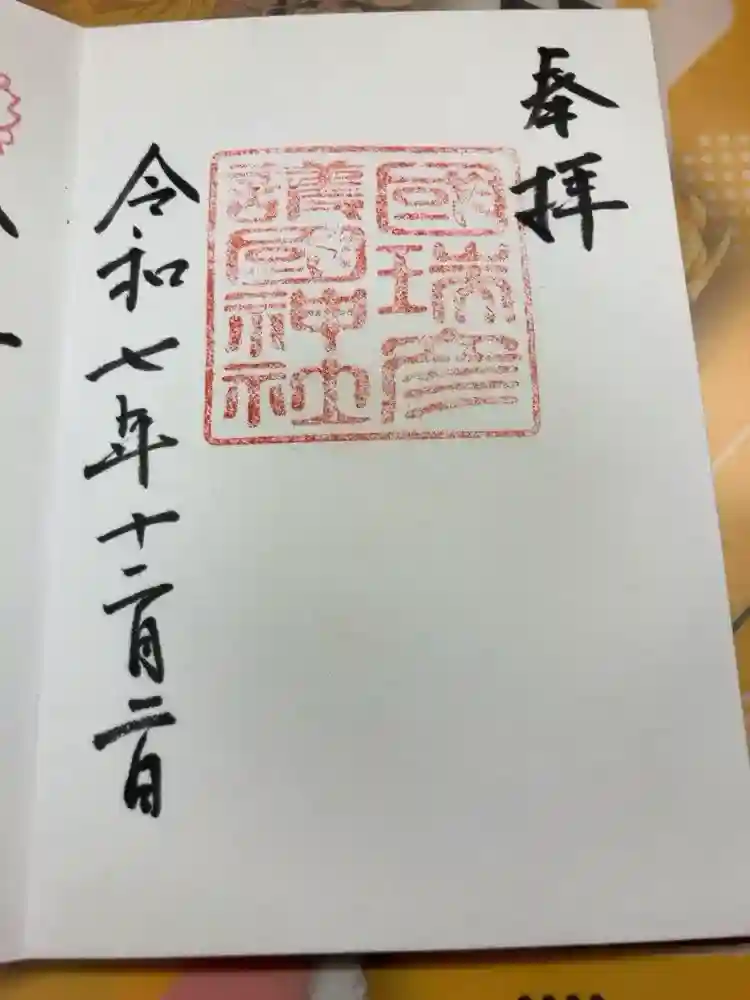 奉拝
國瑞彦
護國神社
令和七年十二月二日